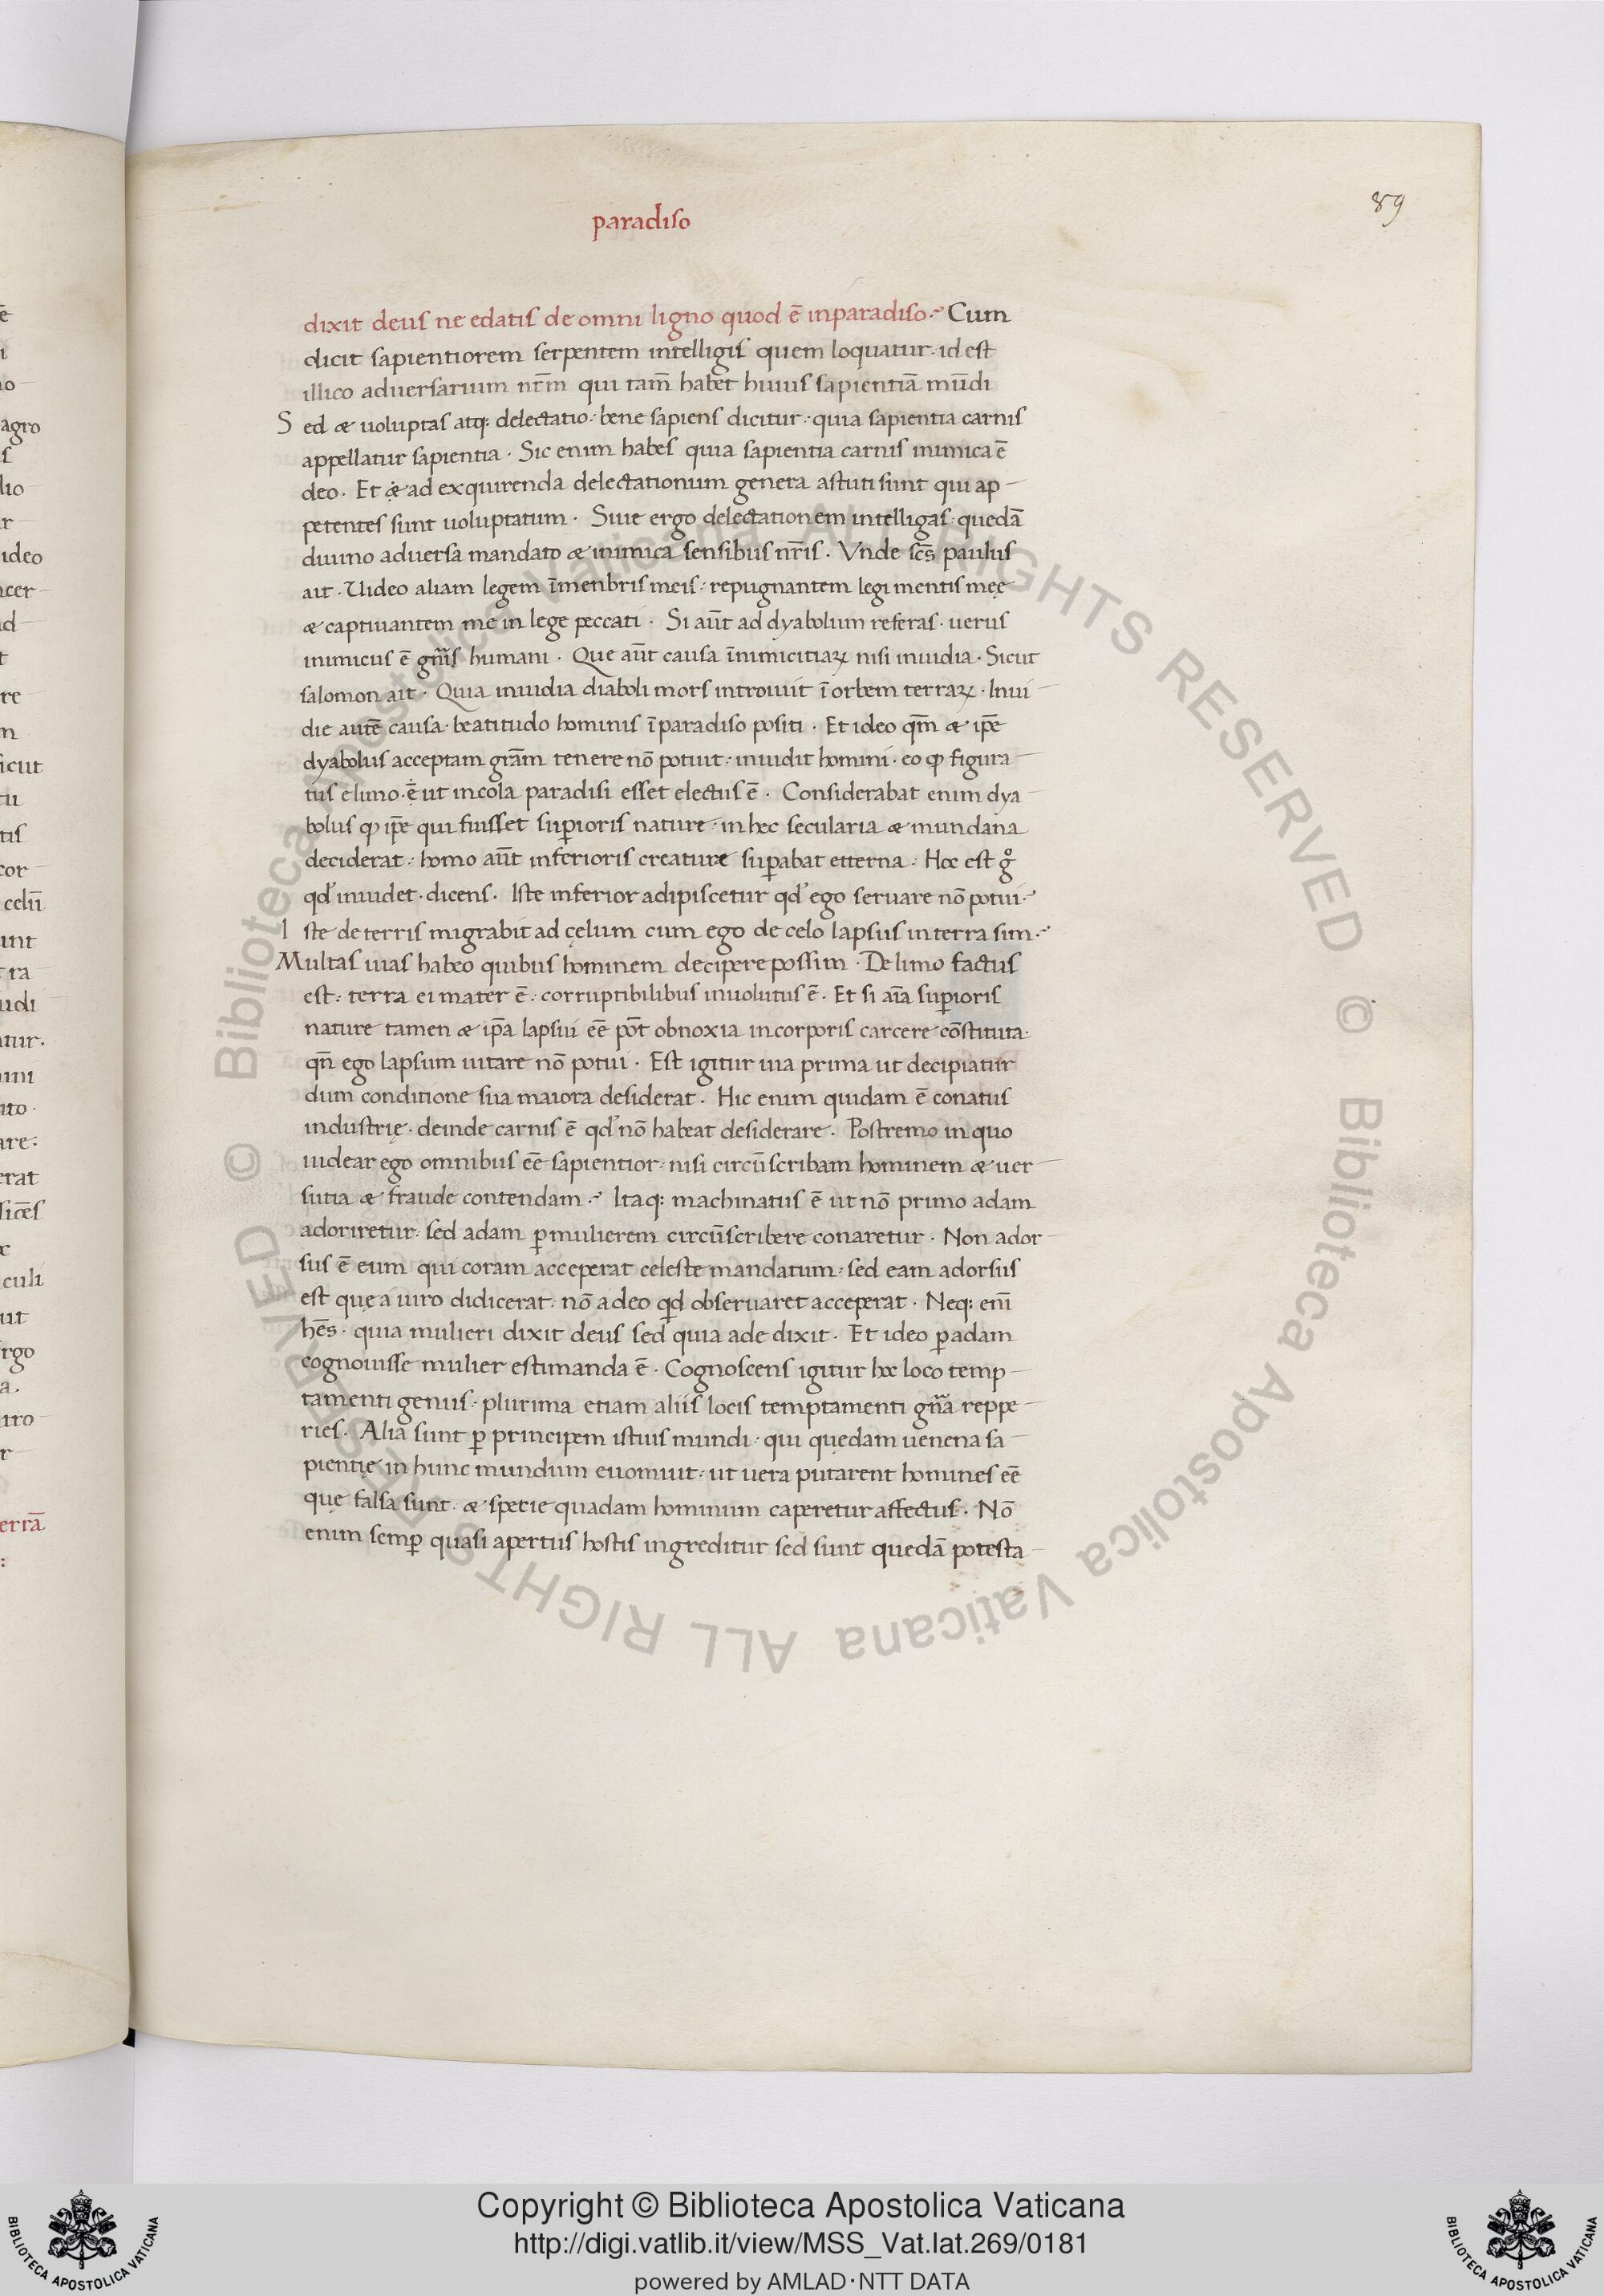 paradiso
89
dixit deus ne edatis de omni ligno quod ē inparadiso. Cum
dicit sapientiorem serpentem intelligis quem loquatur. id est
illico aduersarium nr̄m qui tam̄ habet huius sapientiā mūdi
Sed & uoluptas atq: delectatio. bene sapiens dicitur. quia sapientia carnis
appellatur sapientia. Sic enim habes quia sapientia carnis inimica ē
deo. Et & ad exquirenda delectationum genera astuti sunt qui ap
petentes sunt uoluptatum. Siue ergo delectationem intelligas. quedā
diuino aduersa mandato & inimica sensibus nr̄is. Vnde sc̄s paulus
ait. Uideo aliam legem ī menbris meis. repugnantem legi mentis meę
& captiuantem me in lege peccati. Si aūt ad dyabolum referas. uerus
inimicus ē gn̄is humani. Que aūt causa īnimicitiaꝝ nisi inuidia. Sicut
salomon ait. Quia inuidia diaboli mors introiuit ī orbem terraꝝ. Inui
die autē causa. beatitudo hominis ī paradiso positi. Et ideo qm̄ & ip̄e
dyabolus acceptam grām tenere nō potuit. inuidit homini. eo ꝙ figura
tus elimo. ē ut incola paradisi esset electus ē. Considerabat enim dya
bolus ꝙ ip̄e qui fuisset suꝑioris nature. in hec secularia & mundana
deciderat. homo aūt inferioris creature suꝑabat etterna. Hoc est gͦ
qd' inuidet. dicens. Iste inferior adipiscetur qd' ego seruare nō potui.
Iste de terris migrabit ad cęlum cum ego de celo lapsus in terra sim.
Multas uias habeo quibus hominem decipere possim. De limo factus
est. terra ei mater ē. corruptibilibus inuolutus ē. Et si aīa suꝑioris
nature tamen & ip̄a lapsui eē pōt obnoxia in corporis carcere cōstituta.
qn̄ ego lapsum uitare nō potui. Est igitur uia prima ut decipiatur
dum conditione sua maiora desiderat. Hic enim quidam ē conatus
industrię. deinde carnis ē qd' nō habeat desiderare. Postremo in quo
uidear ego omnibus eē sapientior. nisi circūscribam hominem & uer
sutia & fraude contendam. Itaq: machinatus ē ut nō primo adam
adoriretur. sed adam ꝑ mulierem circūscribere conaretur. Non ador
sus ē eum qui coram acceperat celeste mandatum. sed eam adorsus
est quę a uiro didicerat. nō a deo qd obseruaret acceperat. Neq: enī
hēs. quia mulieri dixit deus sed quia ade dixit. Et ideo ꝑ adam
cognouisse mulier estimanda ē. Cognoscens igitur hoc loco temp
tamenti genus. plurima etiam aliis locis temptamenti gn̄a reppe
ries. Alia sunt ꝑ principem istius mundi. qui quędam uenena sa
pientię in hunc mundum euomuit. ut uera putarent homines eē
quę falsa sunt. & specie quadam hominum caperetur affectus. Nō
enim semꝑ quasi apertus hostis ingreditur sed sunt quedā potesta
Copyright © Biblioteca Apostolica Vaticana
http://digi.vatlib.it/view/MSS_Vat.lat.269/0181
powered by AMLAD·NTT DATA